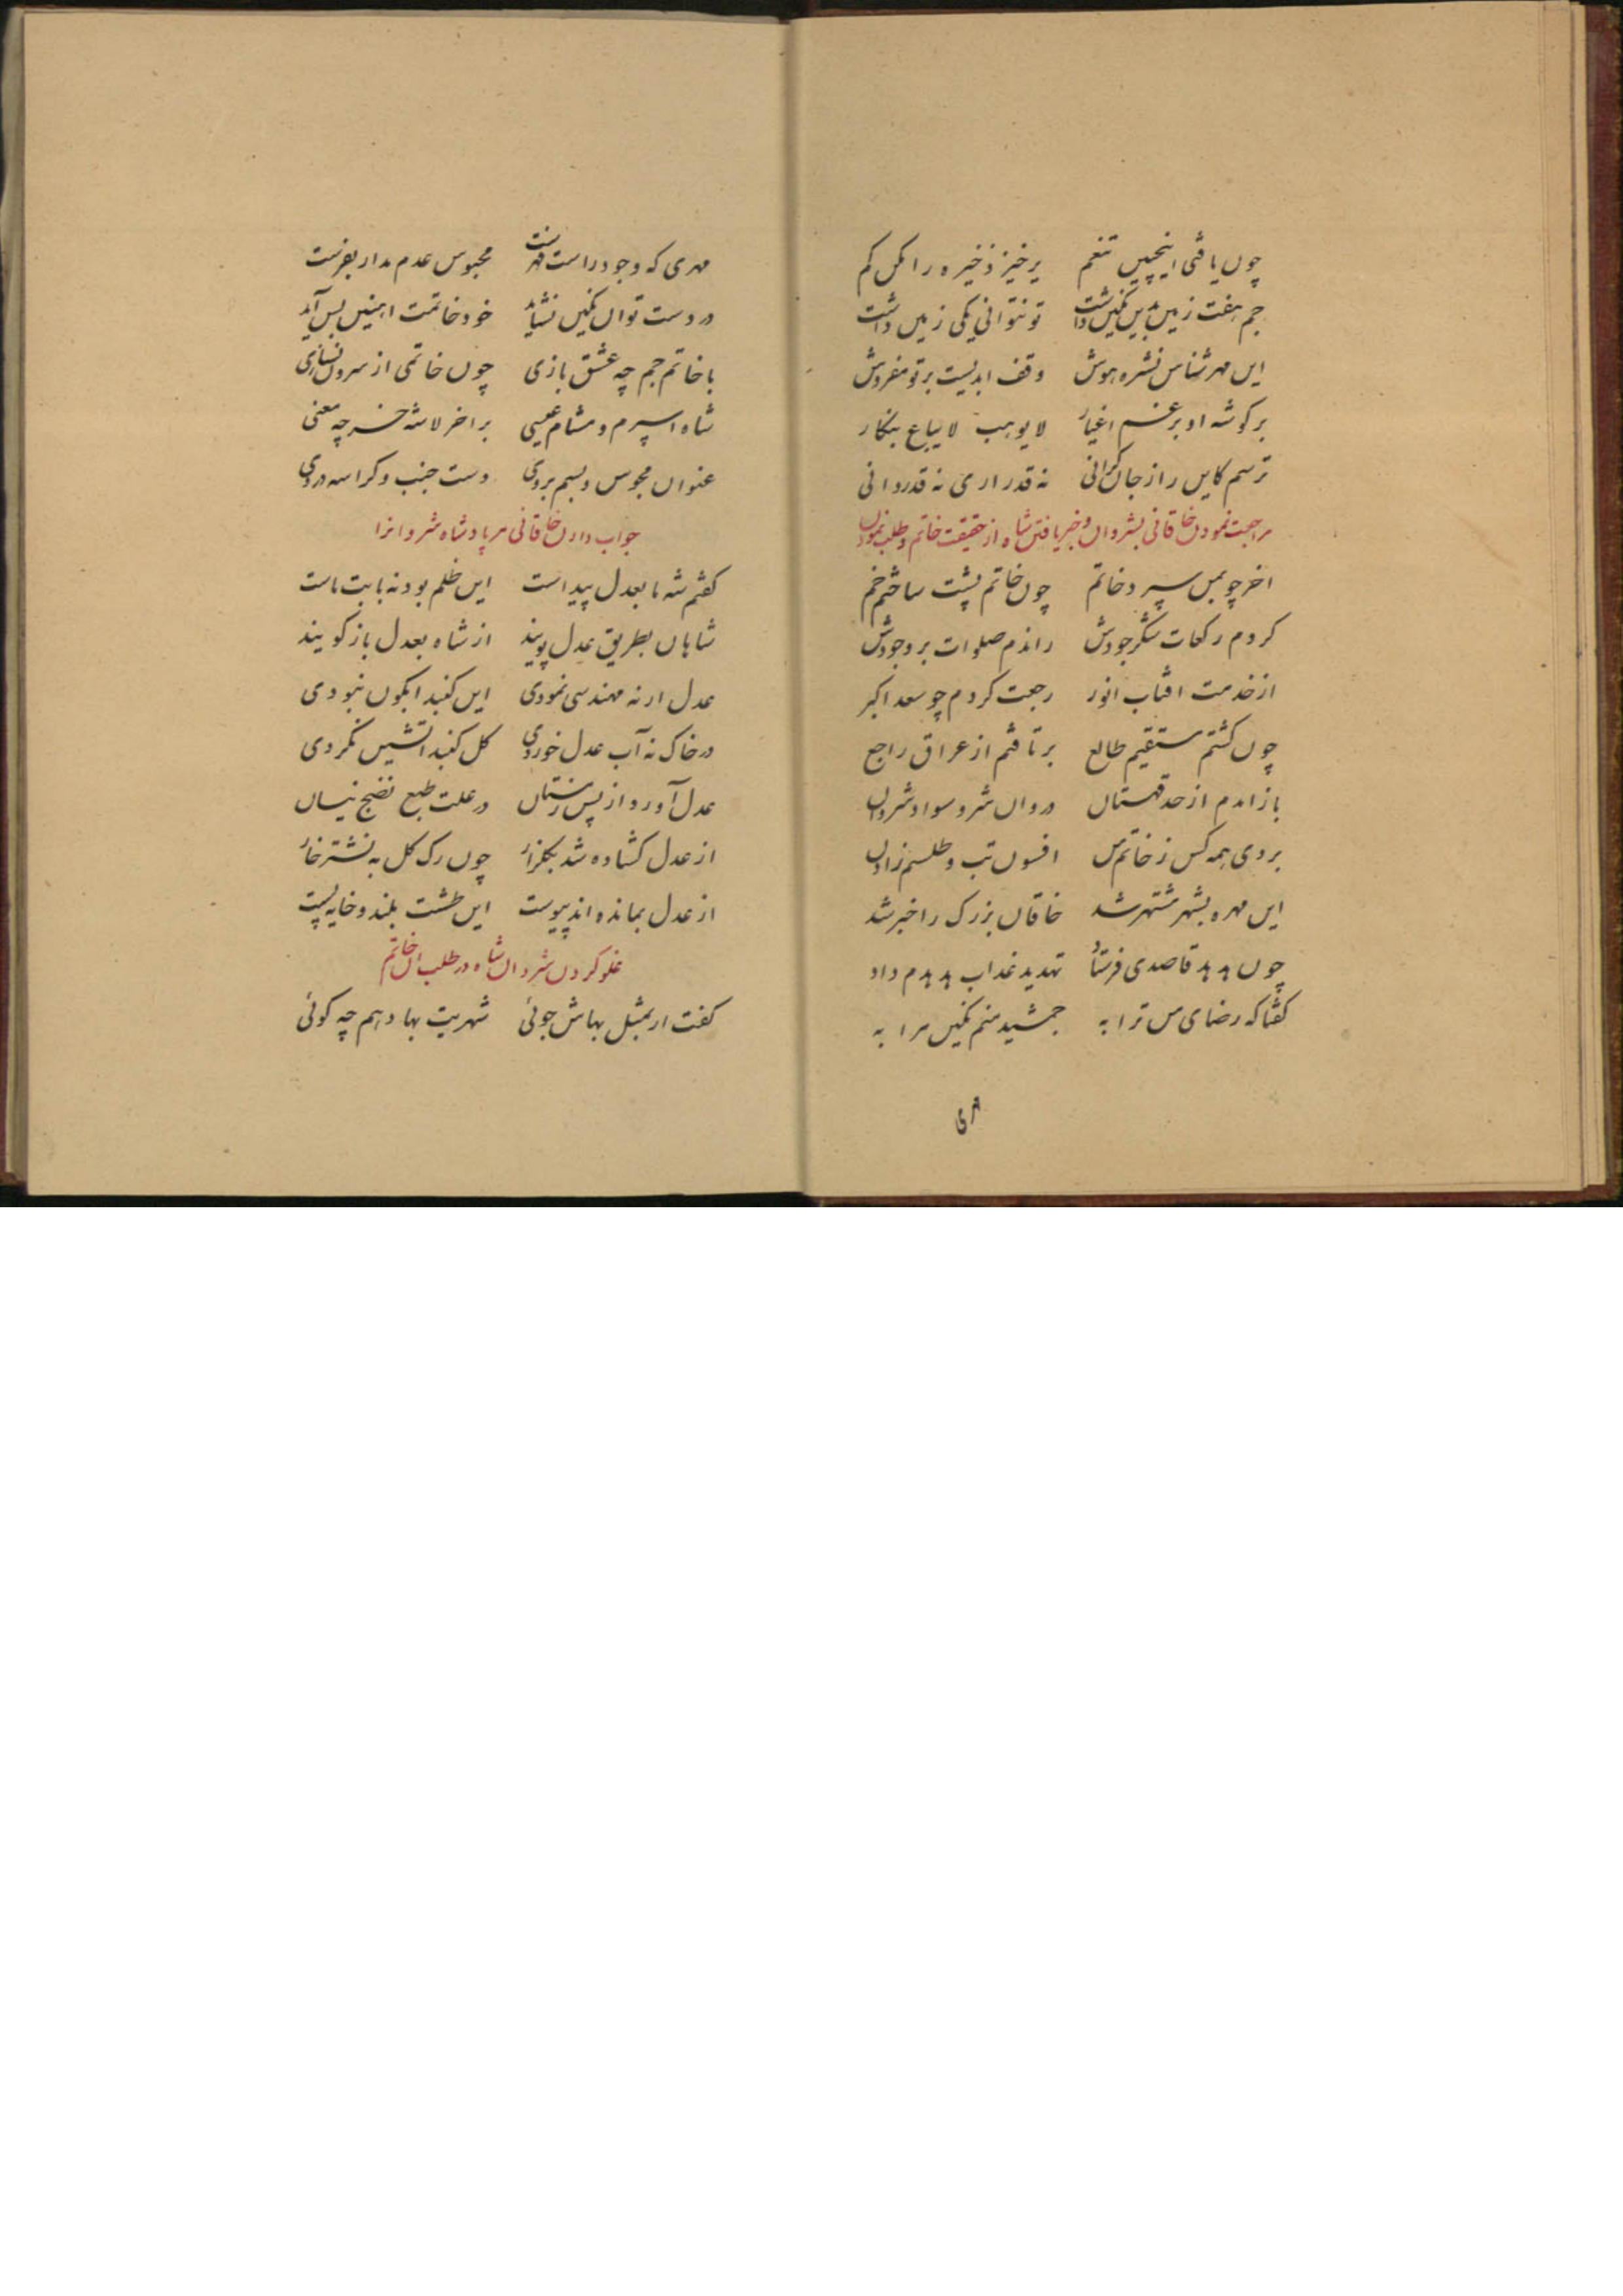 چون یافتی اینچنین تنعم برخیز ذخیره را مکن کم
جم هفت زمین بدین نکین داشت تو نتوانی یکی زمین داشت
این مهر شناس نشره هوش وقف ابدیست بر تو مفروش
بر کوشه او برغم اغیار لا یوهب لا یباع بنکار
ترسم کاین راز جان کرانی نه قدر اری نه قدر دانی
مراجعت نمودن خاقانی بشروان و خبر یافتن شاه از حقیقت خاتم و طلب نمودن
اخر چو بمن سپرد خاتم چون خاتم پشت ساختم خم
کردم رکعات شکر جودش راندم صلوات بر وجودش
از خدمت افتاب انور رجعت کردم چو سعد اکبر
چون کشتم مستقیم طالع برتافتم از عراق راجع
باز امدم از حد قهستان دروان شر و سواد شروان
بردی همه کس ز خاتم من افسون تب و طلسم زادن
این مهره بشهر مشتهر شد خاقان بزرک را خبر شد
چون هدهد قاصدی فرستاد تهدید عذاب هدهدم داد
کفتا که رضای من ترا به جمشید منم نکین مرا به
مهری
مهری که وجود راست مهرست محبوس عدم مدار بفرست
در دست تو ان نکین نشاید خود خاتمت اهنین بس آید
با خاتم جم چه عشق بازی چون خاتمی از سرون نسازی
شاه اسپرم و مشام عیسی بر اخر لاشه خر چه معنی
عنوان مجوس و بسم بر وی دست جنب و کراسه در وی
جواب دادن خاقانی مر پادشاه شروانرا
کفتم شه ما بعدل پیداست این ظلم بود نه بابت ماست
شاهان بطریق عدل پویند از شاه بعدل باز کویند
عدل ار نه مهندسی نمودی این کنبد ابکون نبودی
در خاک نه آب عدل خوردی کل کنبد اتشین نکردی
عدل آورد از پس زمستان در علت طبع نضج نیسان
از عدل کشاده شد بکلزار چون رک کل به نشتر خار
از عدل بمانده اند پیوست این طشت بلند و خایه پست
غلو کردن شروان شاه در طلب ان خاتم
کفت ار بمثل بهاش جوئی شهریت بها دهم چه کوئی